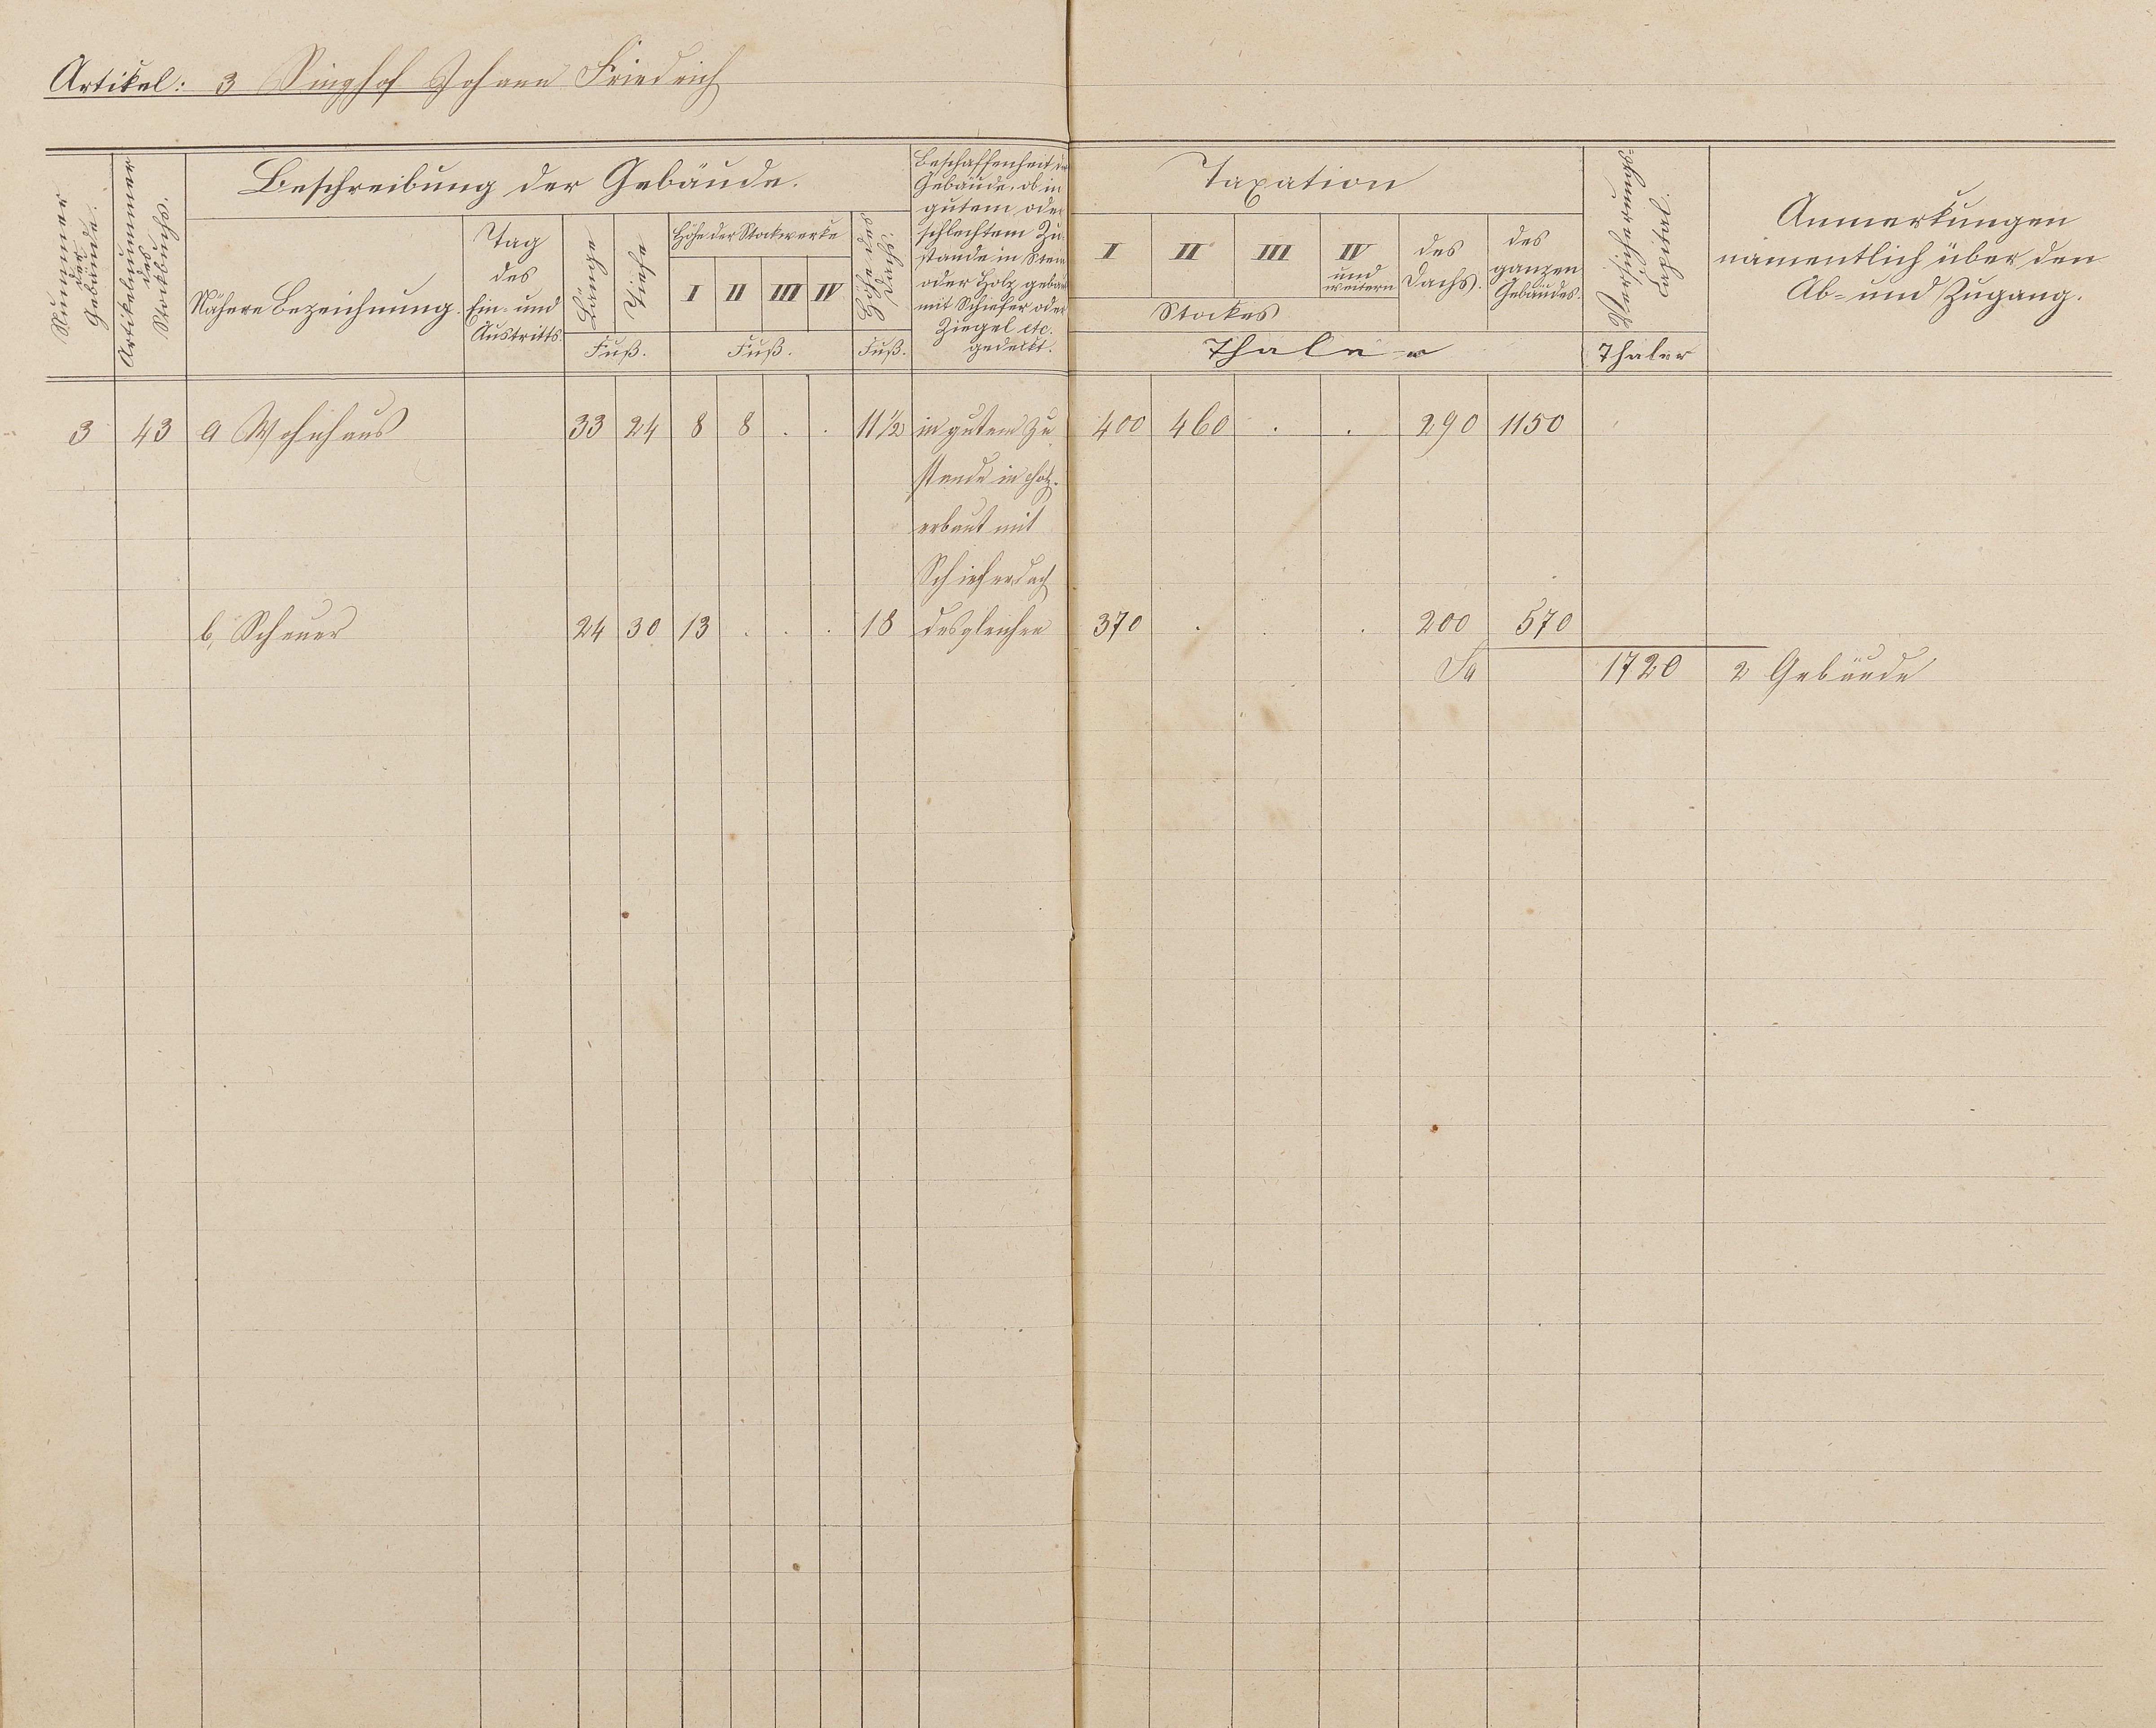 Artikel: 3 Singhof Johann Friedrich
Nummer der Gebäude.
Artikelnummer des Stockbuchs.
Beschreibung der Gebäude.
Nähere Bezeichnung.
Tag des Ein- und Austritts.
Länge
Tiefe
Fuß.
Höhe der Stockwerke
I II III IV
Fuß.
Höhe des Dachs.
Fuß.
Beschaffenheit der
Gebäude, ob in
gutem oder
schlechtem Zu-
stande in Stein
oder Holz gebaut
mit Schiefer oder
Ziegel etc.
gedeckt.
Taxation
I II III IV und weitern
Stockes
des Dachs.
des ganzen Gebäudes.
Thaler
Versicherungs Capital.
Thaler
Anmerkungen
namentlich über den
Ab- und Zugang.
3 43 a Wohnhaus 33 24 8 8 . . 11 1/2 in gutem Zu 400 460 . . 290 1150
stande in Holz
erbaut mit
Schieferdach
b, Scheuer 24 30 13 . . . 18 desgleichen 370 . . . 200 570
Sa 1720 2 Gebäude